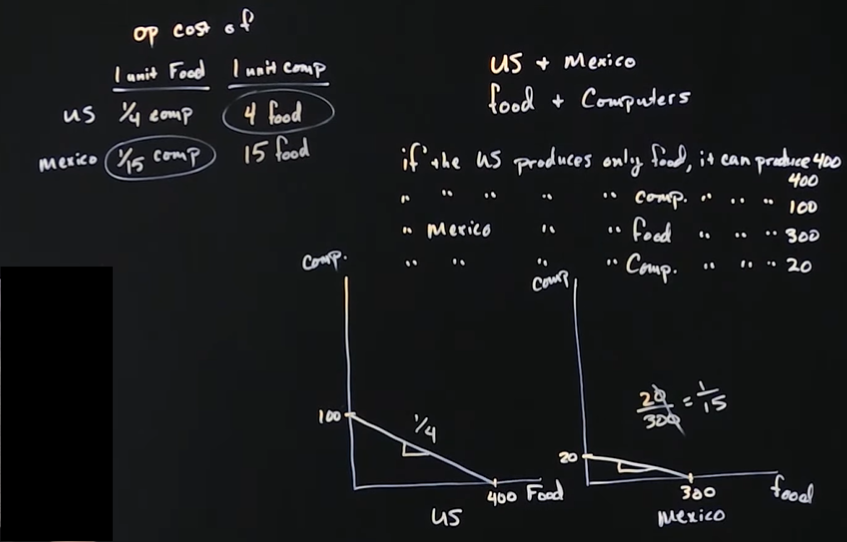 op cost of
1 unit Food 1 unit comp
US 1/4 comp 4 food
Mexico 1/15 comp 15 food
US + Mexico
food + Computers
if the US produces only food, it can produce 400
400
" " " " " comp. " " " 100
" Mexico " " food " " " 300
" " " " Comp. " " " 20
Comp.
100
1/4
400 Food
US
Comp
20/300 = 1/15
20
300 food
Mexico